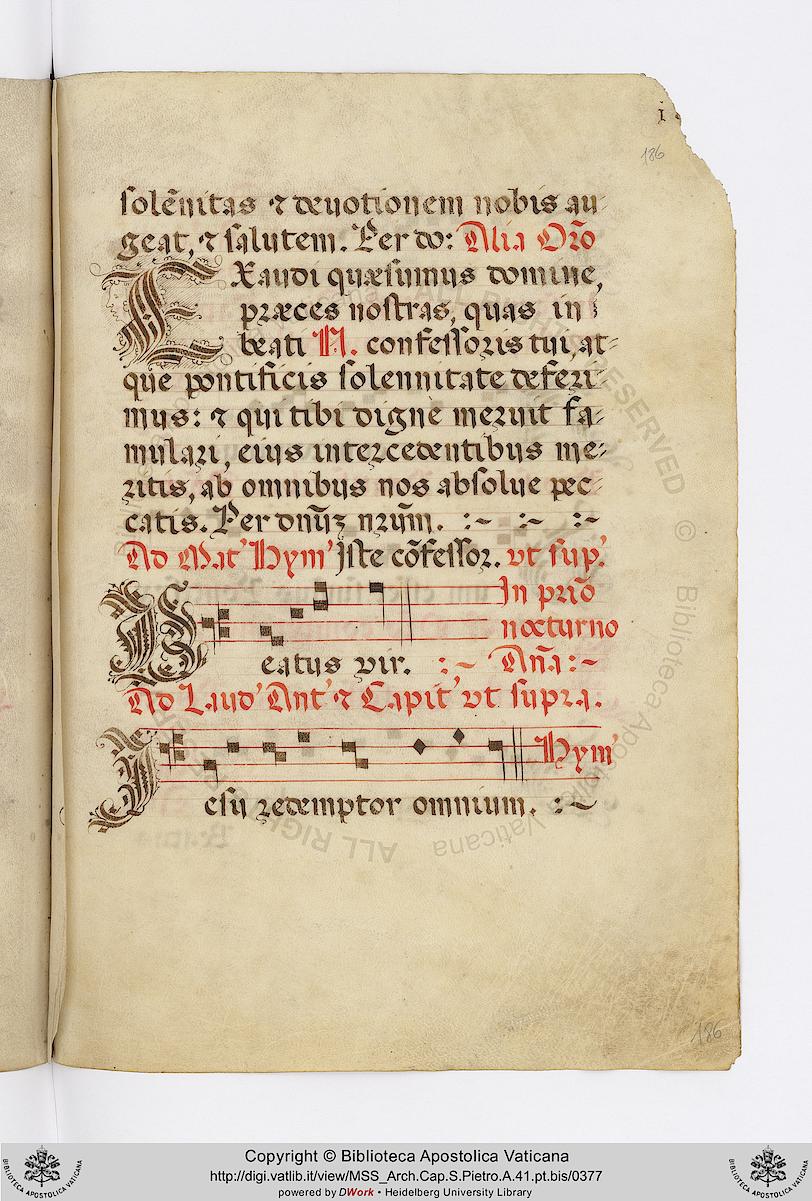 I
186
solẽnitas ⁊ deuotionem nobis au-
geat, ⁊ salutem. Per do: Alia Orõ
EXaudi quæsumus domine,
præces nostras, quas in
beati N. confessoris tui, at-
que pontificis solennitate deferi-
mus: ⁊ qui tibi digne meruit fa-
mulari, eius intercedentibus me-
ritis, ab omnibus nos absolue pec-
catis. Per dnũʒ nrũm. :~ :~ :~
Ad Mat' Hym' Iste cõfessor. vt sup.'
In prio
nocturno
Beatus vir. :~ Añа:~
Ad Laud' Ant' ⁊ Capit' vt supra.
Hym'
Iesu redemptor omnium. :~
186
ALL RIGHTS RESERVED © Biblioteca Apostolica Vaticana
Copyright © Biblioteca Apostolica Vaticana
http://digi.vatlib.it/view/MSS_Arch.Cap.S.Pietro.A.41.pt.bis/0377
powered by DWork • Heidelberg University Library